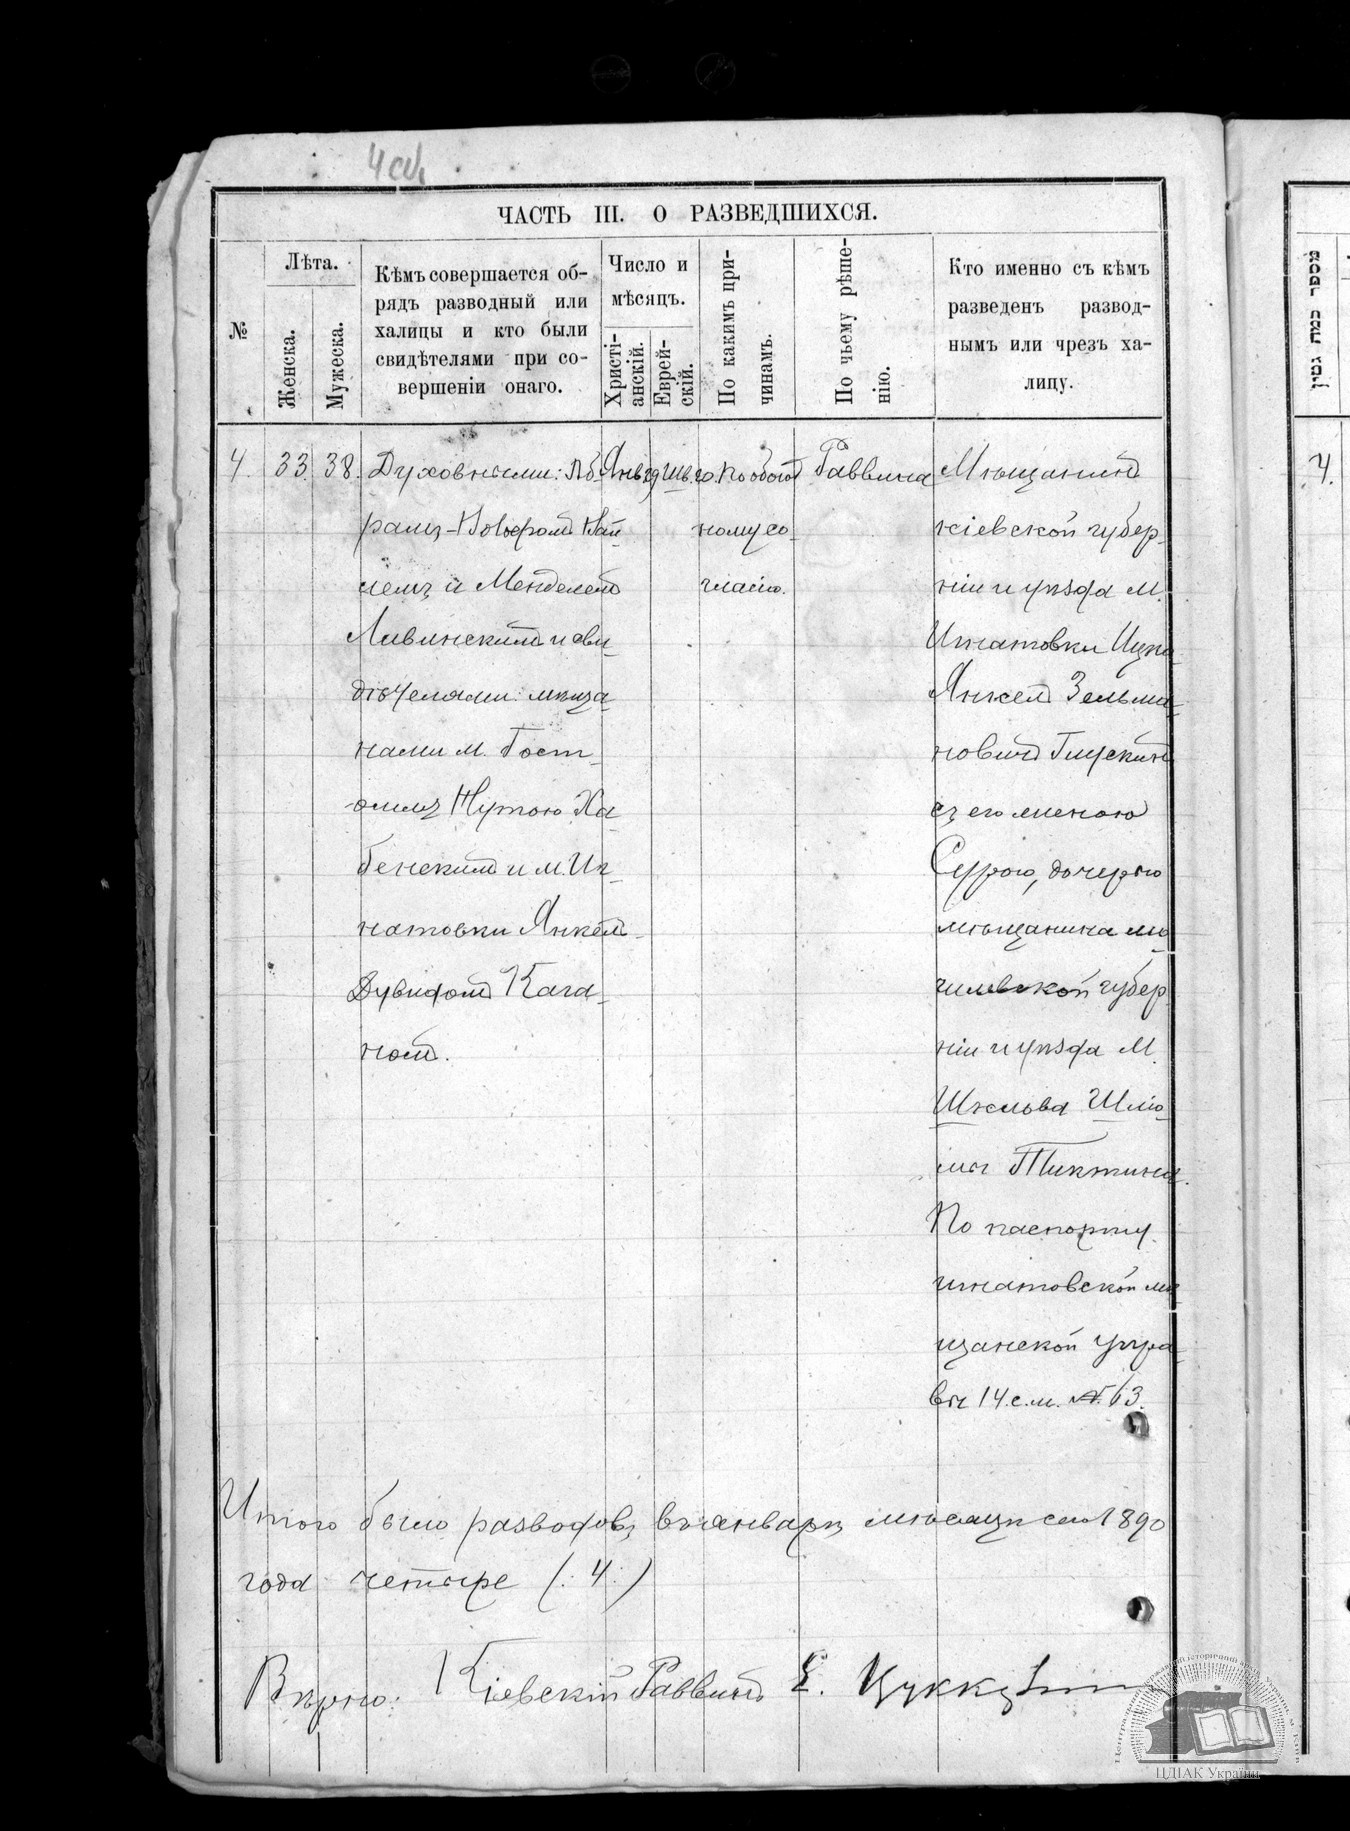 4 об.
ЧАСТЬ III. О РАЗВЕДШИХСЯ.
№
Лѣта.
Женска.
Мужеска.
Кѣмъ совершается об-
рядъ разводный или
халицы и кто были
свидѣтелями при со-
вершеніи онаго.
Число и
мѣсяцъ.
Христі-
анскій.
Еврей-
скій.
По какимъ при-
чинамъ.
По чьему рѣше-
нію.
Кто именно съ кѣмъ
разведенъ развод-
нымъ или чрезъ ха-
лицу.
4. 33. 38.
Духовными: Аб-
рамъ-
и Менделемъ
и сви-
дѣтелями: мѣща-
нами м. Гост-
омль Нутою Ха-
бенскимъ и м. Иг-
натовки Янкел-
Дувидомъ Кага-
номъ.
Янв. 29
Шв. 20.
По обоюд
ному со-
гласію.
Раввина
Мѣщанинъ
кіевской губер-
ніи и уѣзда М.
Игнатовки Ицко-
Янкель Зельма-
новичъ Глускинъ
съ его женою
Сурою, дочерью
мѣщанина мо-
гилевской губер
ніи и уѣзда М.
Шклова Шлio-
мы Тиктина.
По паспорту
игнатовской мѣ-
щанской упра-
вы 14 с.м. № 63.
Итого было разводовъ въ январѣ мѣсяцѣ сего 1890
года четыре (: 4 :)
Вѣрно: Кіевскій Раввинъ Е. Цуккерманъ
מספר כמה גטין
4.
ЦДІАК України